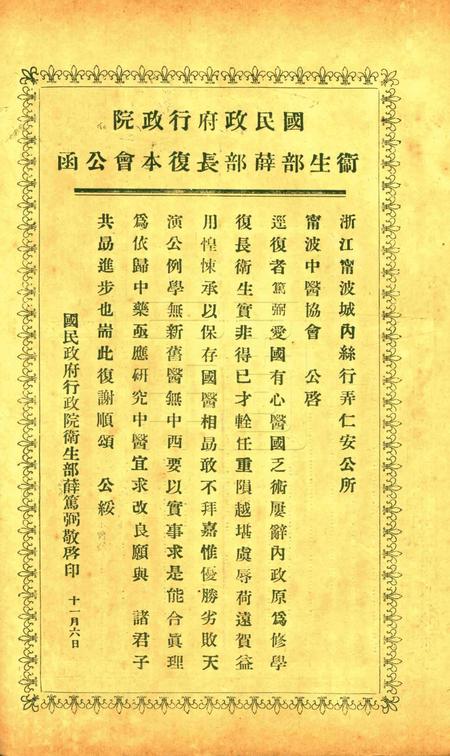 國民政府行政院
衛生部薛部長復本會公函
浙江甯波城內絲行弄仁安公所
甯波中醫協會　公啓
逕復者篤弼愛國有心醫國乏術屢辭內政原爲修學
復長衛生實非得已才輇任重隕越堪虞辱荷遠賀益
用惶悚承以保存國醫相勗敢不拜嘉惟優勝劣敗天
演公例學無新舊醫無中西要以實事求是能合眞理
爲依歸中藥亟應研究中醫宜求改良願與　諸君子
共勗進步也耑此復謝順頌　公綏
國民政府行政院衛生部薛篤弼敬啓印　十一月六日